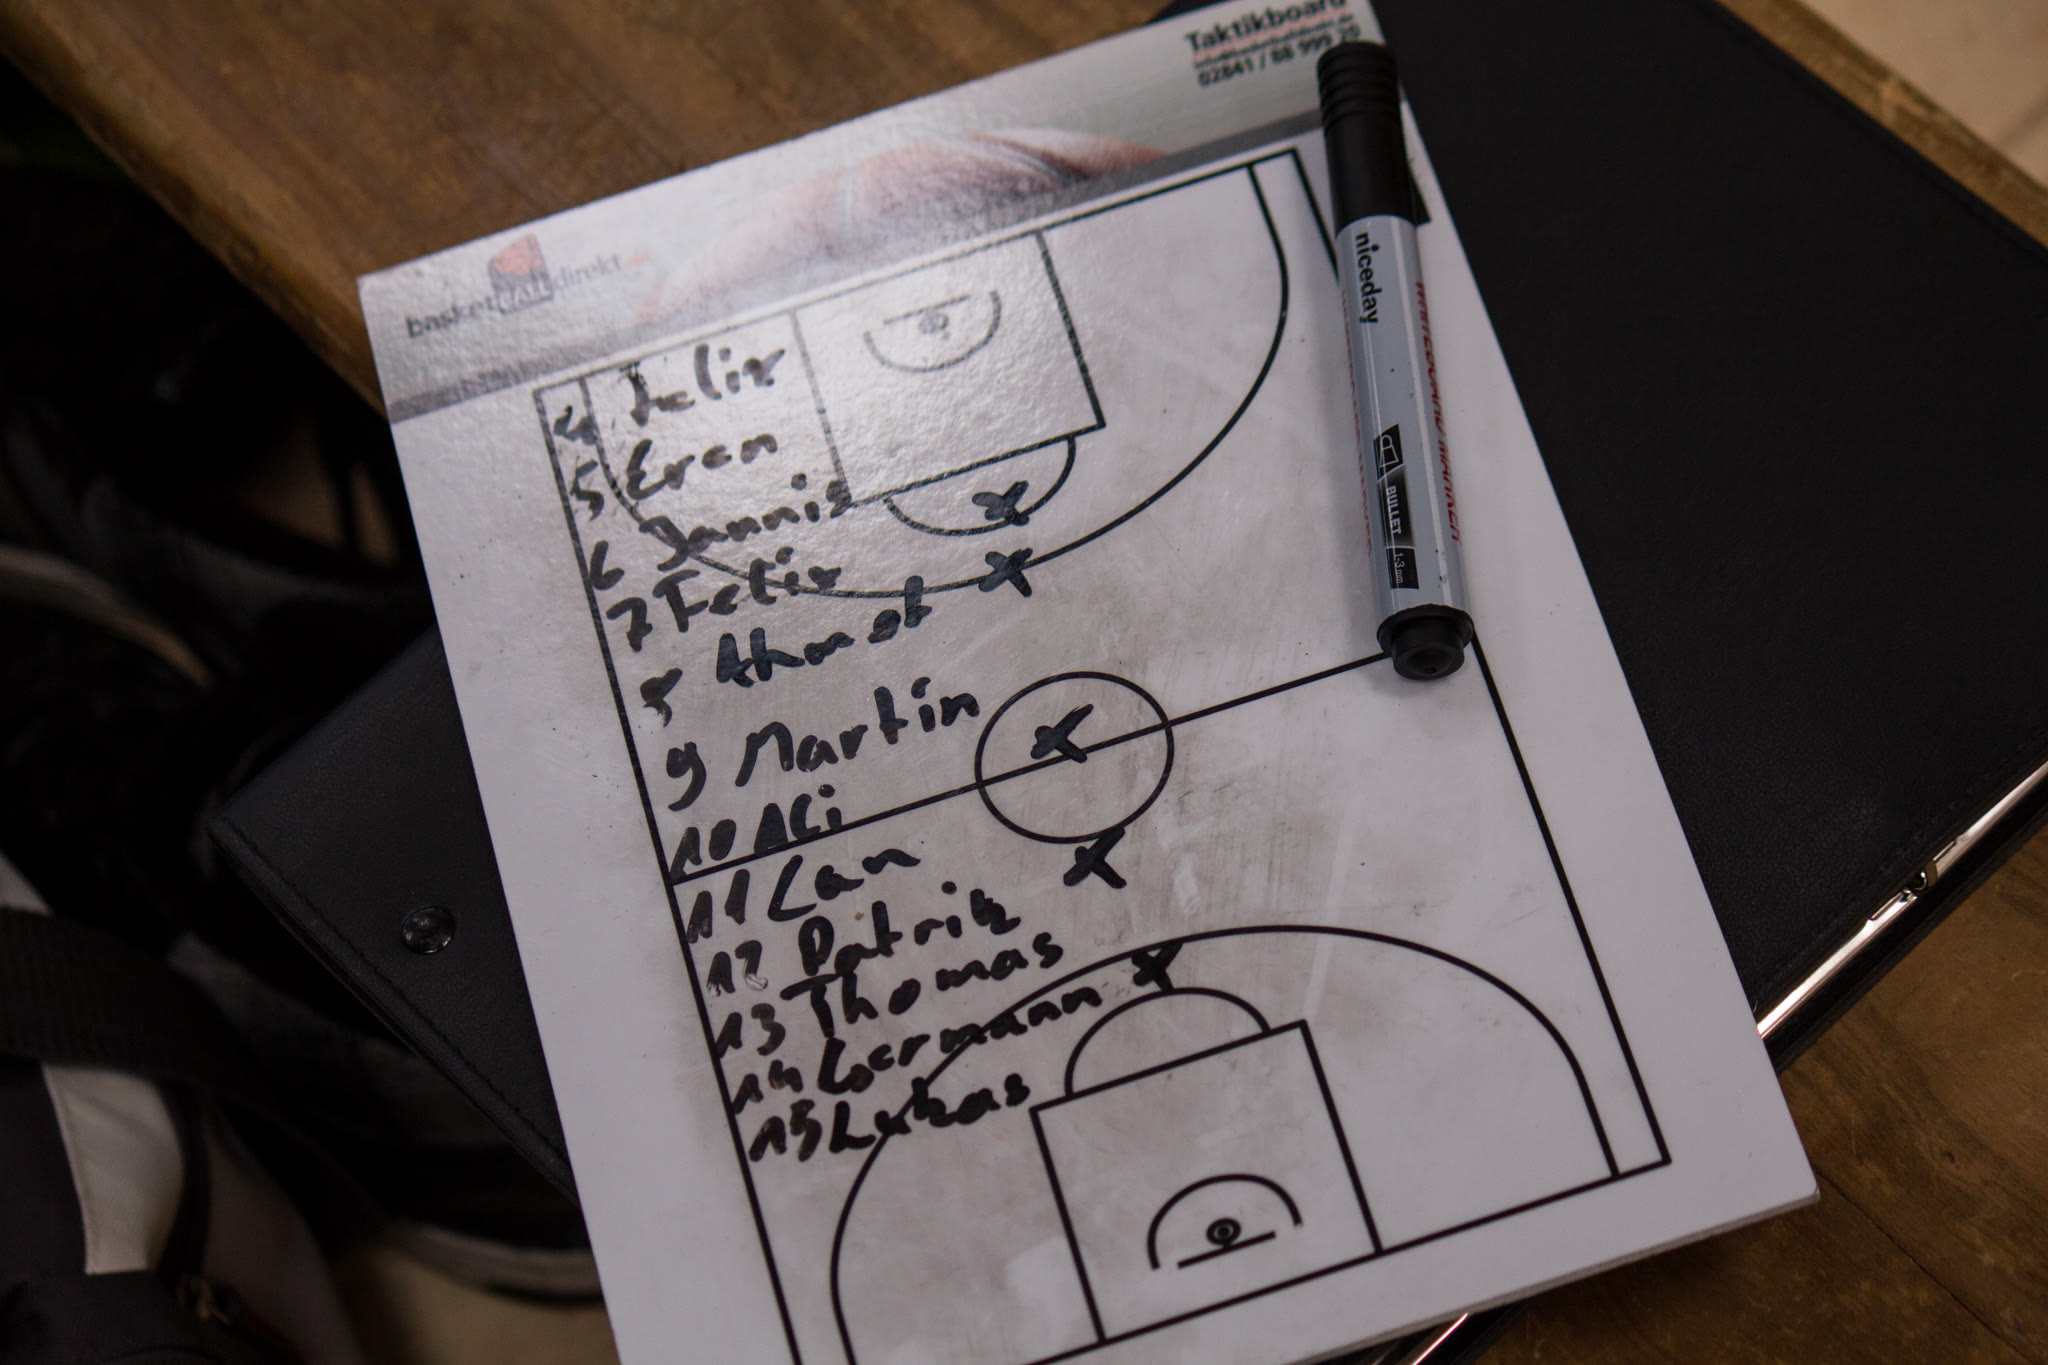 Taktikboard
02841 / 88 999 20
basketBALLdirekt
4 Felix
5 Eren
6 Jannis
7 Felix
8 Ahmet
9 Martin
10 Ali
11 Can
12 Patrik
13 Thomas
14 Germann
15 Lukas
niceday
WHITEBOARD MARKER
BULLET 1-3 mm